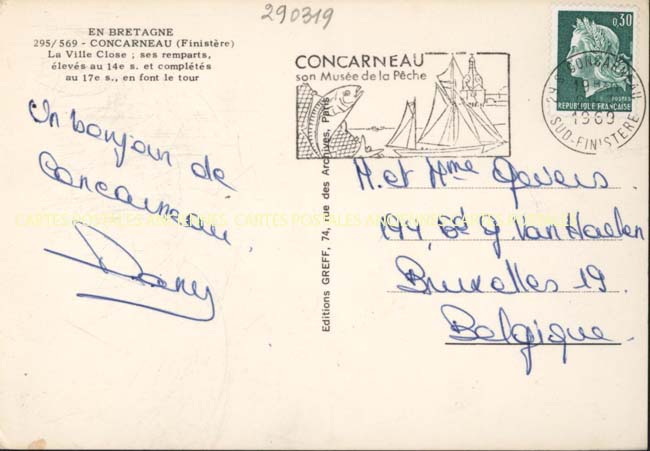 290319
EN BRETAGNE
295/569 - CONCARNEAU (Finistère)
La Ville Close ; ses remparts,
élevés au 14e s. et complétés
au 17e s., en font le tour
Un bonjour de
Concarneau.
Dany
Editions GREFF, 74, rue des Archives, Paris
CONCARNEAU
son Musée de la Pêche
0,30
POSTES
REPUBLIQUE FRANÇAISE
CONCARNEAU
1969
SUD-FINISTERE
M. et Mme Gevers
194, Bd G. Van Haelen
Bruxelles 19.
Belgique.
CARTES POSTALES ANCIENNES CARTES POSTALES ANCIENNES CARTES POSTALES ANCIENNES